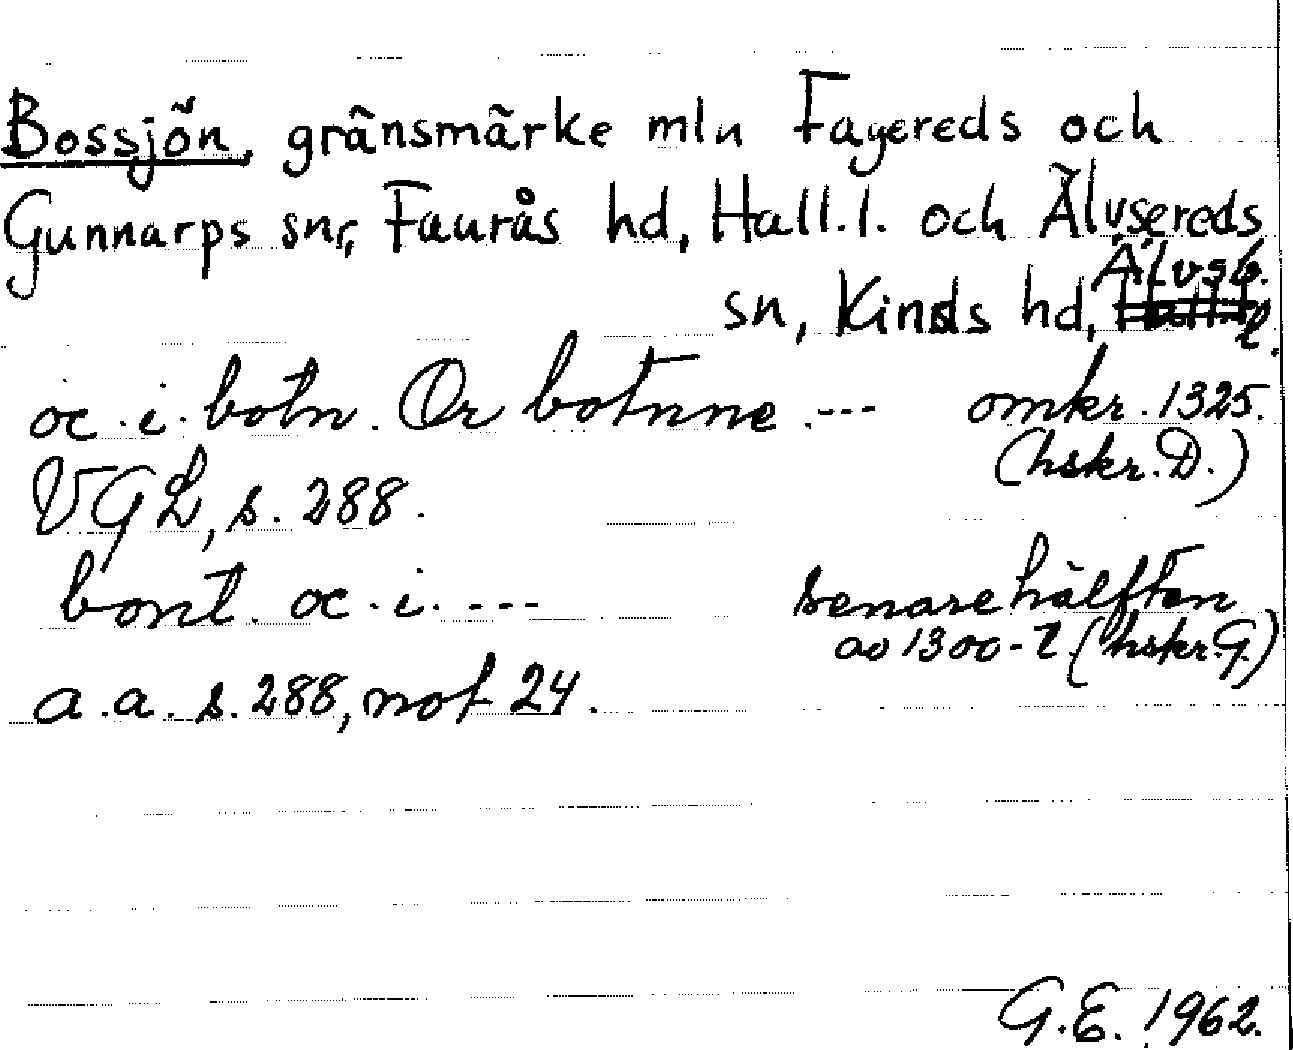 Bossjön, gränsmärke mln Fagereds och
Gunnarps snr, Faurås hd, Hall.l. och Älvsereds
sn, Kinds hd, Älvsb. l.
oc.i.botn. Or botnne.--- omkr.1325.
(hskr.D.)
VGL, s.288.
bont. oc.i.--- senare hälften
av 1300-t.(hskr.G.)
a.a. s.288, not 24.
G.E. 1962.